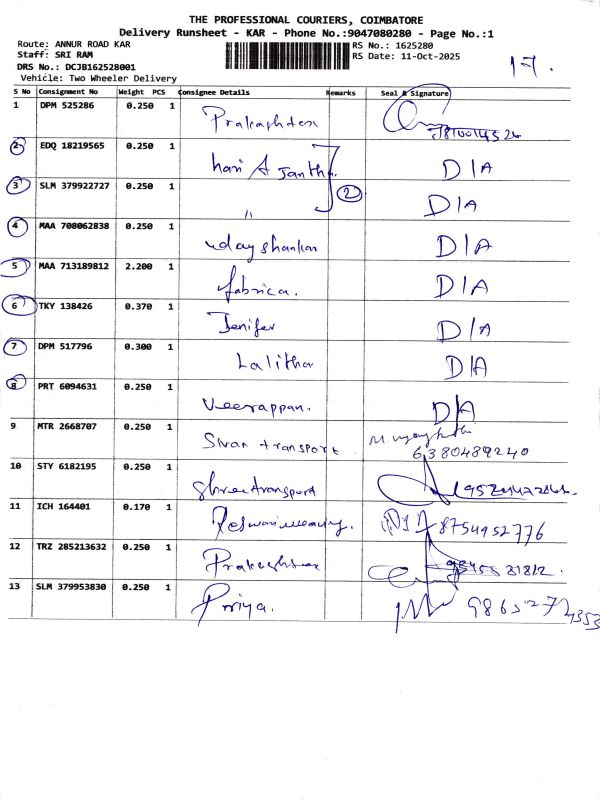 THE PROFESSIONAL COURIERS, COIMBATORE
Delivery Runsheet - KAR - Phone No.:9047080280 - Page No.:1
Route: ANNUR ROAD KAR
RS No.: 1625280
Staff: SRI RAM
RS Date: 11-Oct-2025
17.
DRS No.: DCJB162528001
Vehicle: Two Wheeler Delivery
S No Consignment No Weight PCS Consignee Details Remarks Seal & Signature
1 DPM 525286 0.250 1
2 EDQ 18219565 0.250 1 hari A Janth D/A
3 SLM 379922727 0.250 1 " 2 D/A
4 MAA 708062838 0.250 1 udayshankar D/A
5 MAA 713189812 2.200 1 fabrica. D/A
6 TKY 138426 0.370 1 Jenifer D/A
7 DPM 517796 0.300 1 Lalitha D/A
8 PRT 6094631 0.250 1 Veerappan. D/A
9 MTR 2668707 0.250 1 Sivan transport 6380489240
10 STY 6182195 0.250 1 Shree transport
11 ICH 164401 0.170 1 8754952776
12 TRZ 285213632 0.250 1
13 SLM 379953830 0.250 1 Priya.